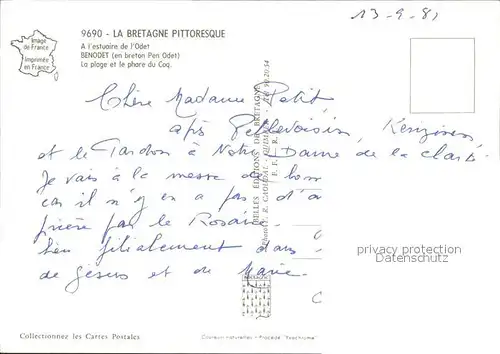 13-9-81
9690 - LA BRETAGNE PITTORESQUE
A l'estuaire de l'Odet
BENODET (en breton Pen Odet)
La plage et le phare du Coq.
Image
de France
Imprimée
en France
Chère Madame Petit,
après Pellevoisin,
et le Pardon à Notre Dame de la clarté
Je vais à la messe de
car il n'y en a pas d'a
prière par le Rosaire
bien filialement dans
de Jésus et de Marie.
BELLES EDITIONS DE BRETAGNE
privacy protection
Datenschutz
Collectionnez les Cartes Postales
Couleurs naturelles - Procédé "Yvochrome"